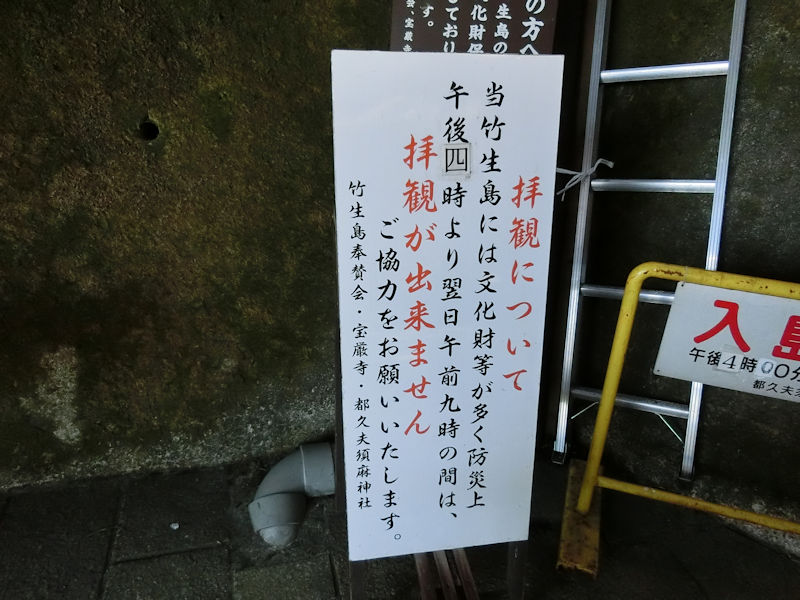 拝観について
当竹生島には文化財等が多く防災上
午後四時より翌日午前九時の間は、
拝観が出来ません
ご協力をお願いいたします。
竹生島奉賛会・宝厳寺・都久夫須麻神社
の方へ
生島の
化財保
ており
す。
会、宝厳寺
入島
午後4時00分
都久夫須